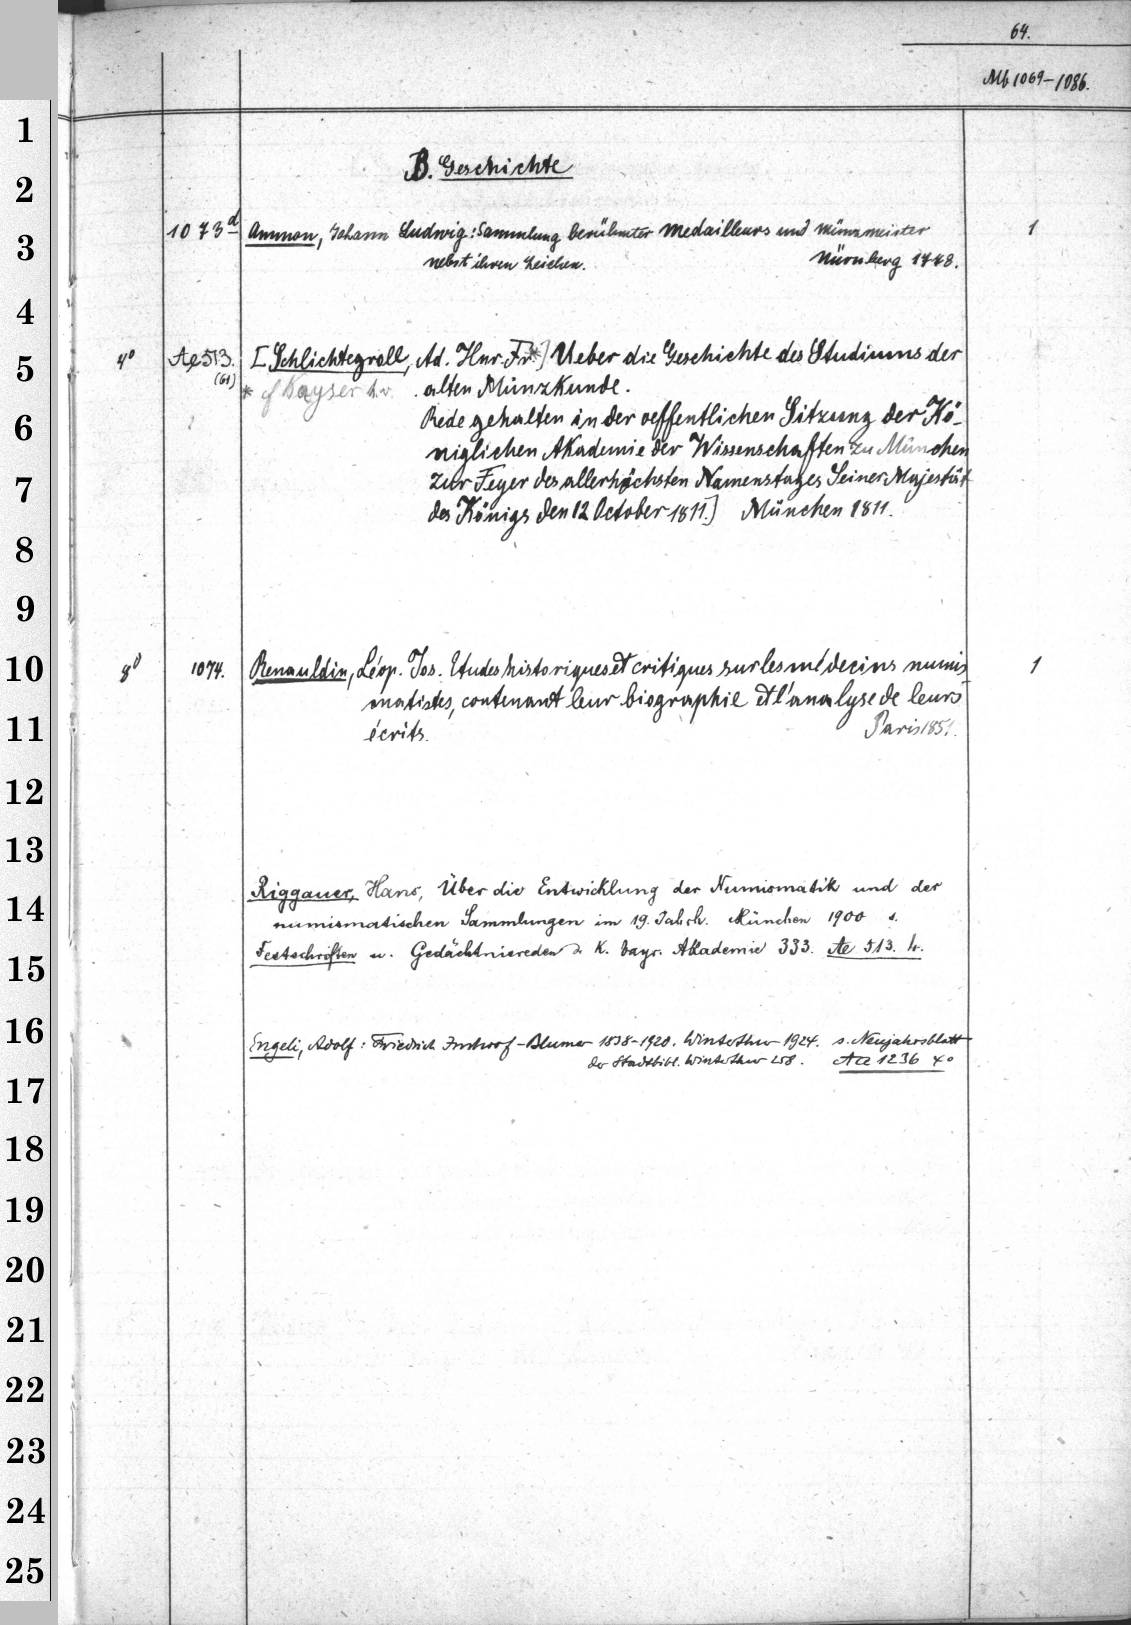 64.
Mb 1069-1086.
B. Geschichte
1073d Ammon, Johann Ludwig: Sammlung berühmter Medailleurs und Münzmeister 1
nebst ihren Zeichen. Nürnberg 1778.
4° Ae 513. [Schlichtegroll, Ad. Hnr. Fr.*] Ueber die Geschichte des Studiums der
(61) * cf Kayser h.v. alten Münzkunde.
Rede gehalten in der oeffentlichen Sitzung der Kö-
niglichen Akademie der Wissenschaften zu München
zur Feyer des allerhöchsten Namenstages Seiner Majestät
des Königs den 12 October 1811.] München 1811.
8° 1074. Renauldin, Léop. Jos. Etudes historiques et critiques sur les médecins numis- 1
matistes, contenant leur biographie et l'analyse de leurs
écrits. Paris 1851.
Riggauer, Hans, Über die Entwicklung der Numismatik und der
numismatischen Sammlungen im 19. Jahrh. München 1900 s.
Festschriften u. Gedächtnisreden d. K. bayr. Akademie 333. Ae 513. h.
Engeli, Adolf: Friedrich Imhoof-Blumer 1838-1920. Winterthur 1924. s. Neujahrsblatt
der Stadtbibl. Winterthur 258. Aa 1236 4°
1
2
3
4
5
6
7
8
9
10
11
12
13
14
15
16
17
18
19
20
21
22
23
24
25